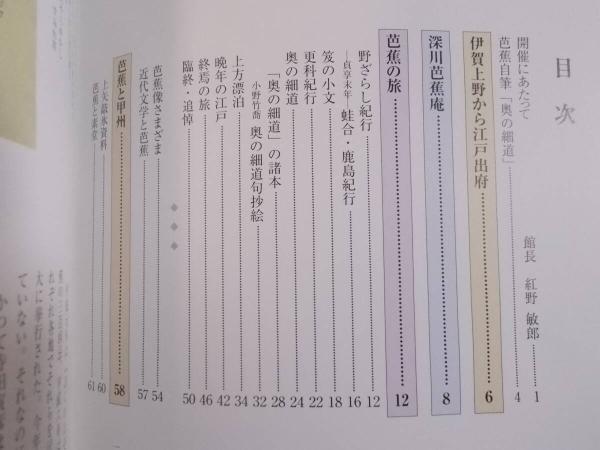 目次
開催にあたって 館長 紅野敏郎 1
芭蕉自筆「奥の細道」 4
伊賀上野から江戸出府 6
深川芭蕉庵 8
芭蕉の旅 12
野ざらし紀行 12
―貞享末年―蛙合・鹿島紀行 16
笈の小文 18
更科紀行 22
奥の細道 24
「奥の細道」の諸本 28
小野竹喬 奥の細道句抄絵 32
上方漂泊 34
晩年の江戸 42
終焉の旅 46
臨終・追悼 50
◆◆◆
芭蕉像さまざま 54
近代文学と芭蕉 57
芭蕉と甲州 58
60
芭蕉と素堂 61
大に挙行された。今年
ていない。それなのに